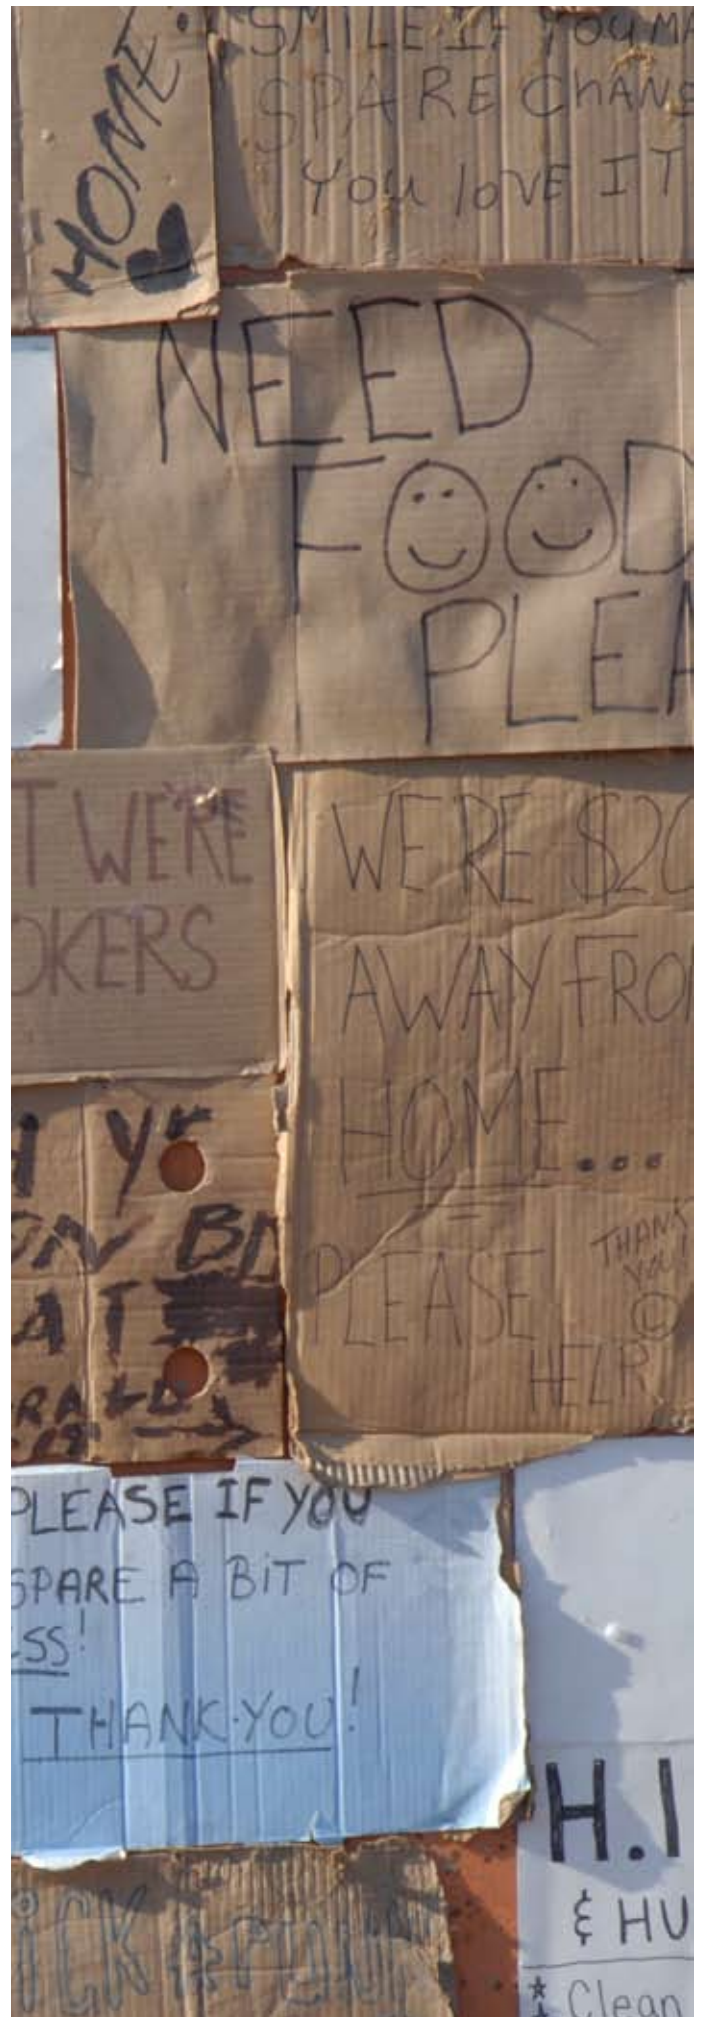 HOME
SMILE IF YOU MA
SPARE CHANG
YOU LOVE IT
NEED
FOOD
PLEA
T WERE
OKERS
WERE $20
AWAY FROM
HOME...
PLEASE
THANK
YOU!
HELP
Yr
ON
AT
PLEASE IF YOU
SPARE A BIT OF
ESS!
THANK-YOU!
H.I
& HU
Clean
ICK